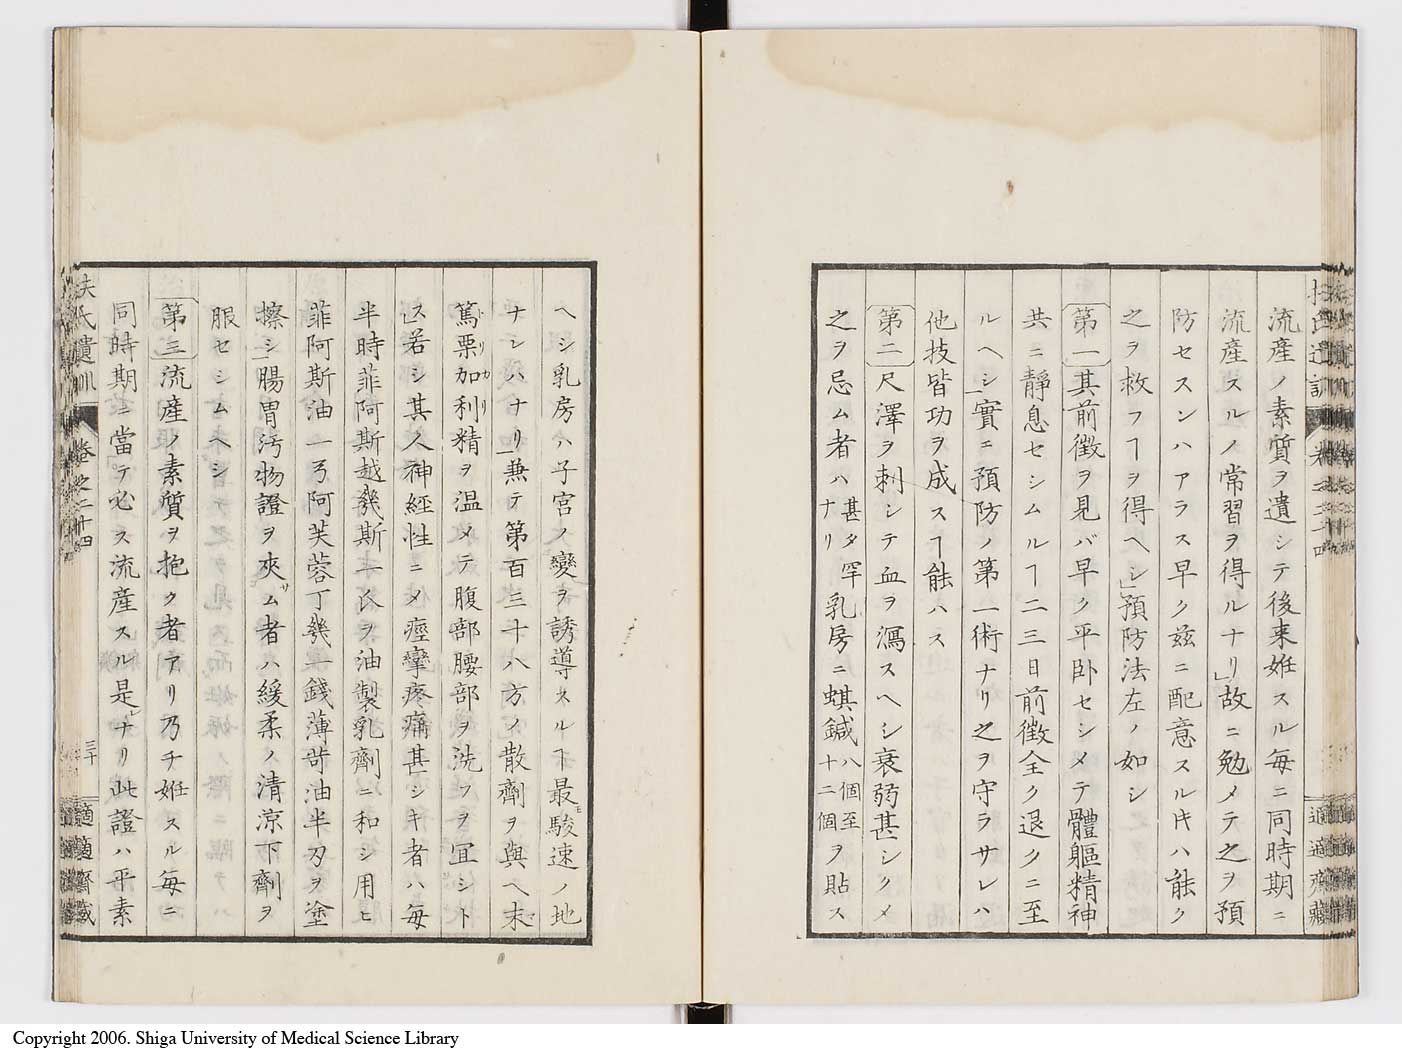 流産ノ素質ヲ遺シテ後来姙スル毎ニ同時期ニ
流産スルノ常習ヲ得ルナリ」故ニ勉メテ之ヲ預
防セスンハアラス早ク玆ニ配意スル𪜈ハ能ク
之ヲ救フヿヲ得ヘシ」預防法左ノ如シ
第一 其前徴ヲ見バ早ク平卧セシメテ體軀精神
共ニ靜息セシムルヿ二三日前徴全ク退クニ至
ルヘシ」實ニ預防ノ第一術ナリ之ヲ守ラサレハ
他技皆功ヲ成スヿ能ハス
第二 尺澤ヲ刺シテ血ヲ瀉スヘシ衰弱甚シクメ
之ヲ忌ム者ハ甚タ罕ナリ乳房ニ蜞鍼八個至十二個ヲ貼ス
扶氏遺訓 卷之二十四
適適齊藏
ヘシ乳房ハ子宮ノ變ヲ誘導スルヿ最モ駿速ノ地
ナレハナリ」兼テ第百三十八方ノ散劑ヲ與ヘ末セ
篤栗加利精ヲ温メテ腹部腰部ヲ洗フヲ冝シト
ス」若シ其人神經性ニメ痙攣疼痛甚シキ者ハ毎
半時菲阿斯越幾斯一氏ヲ油製乳劑ニ和シ用ヒ
菲阿斯油一弓阿芙蓉丁幾半錢薄荷油半刄ヲ塗
擦シ」腸胃汚物證ヲ夾サム者ハ緩柔ノ清涼下劑ヲ
服セシムヘシ
第三 流産ノ素質ヲ抱ク者アリ乃チ姙スル毎ニ
同時期ニ當テ必ス流産スル是ナリ此證ハ平素
扶氏遺訓 卷之二十四 三十 適適齊藏
Copyright 2006. Shiga University of Medical Science Library